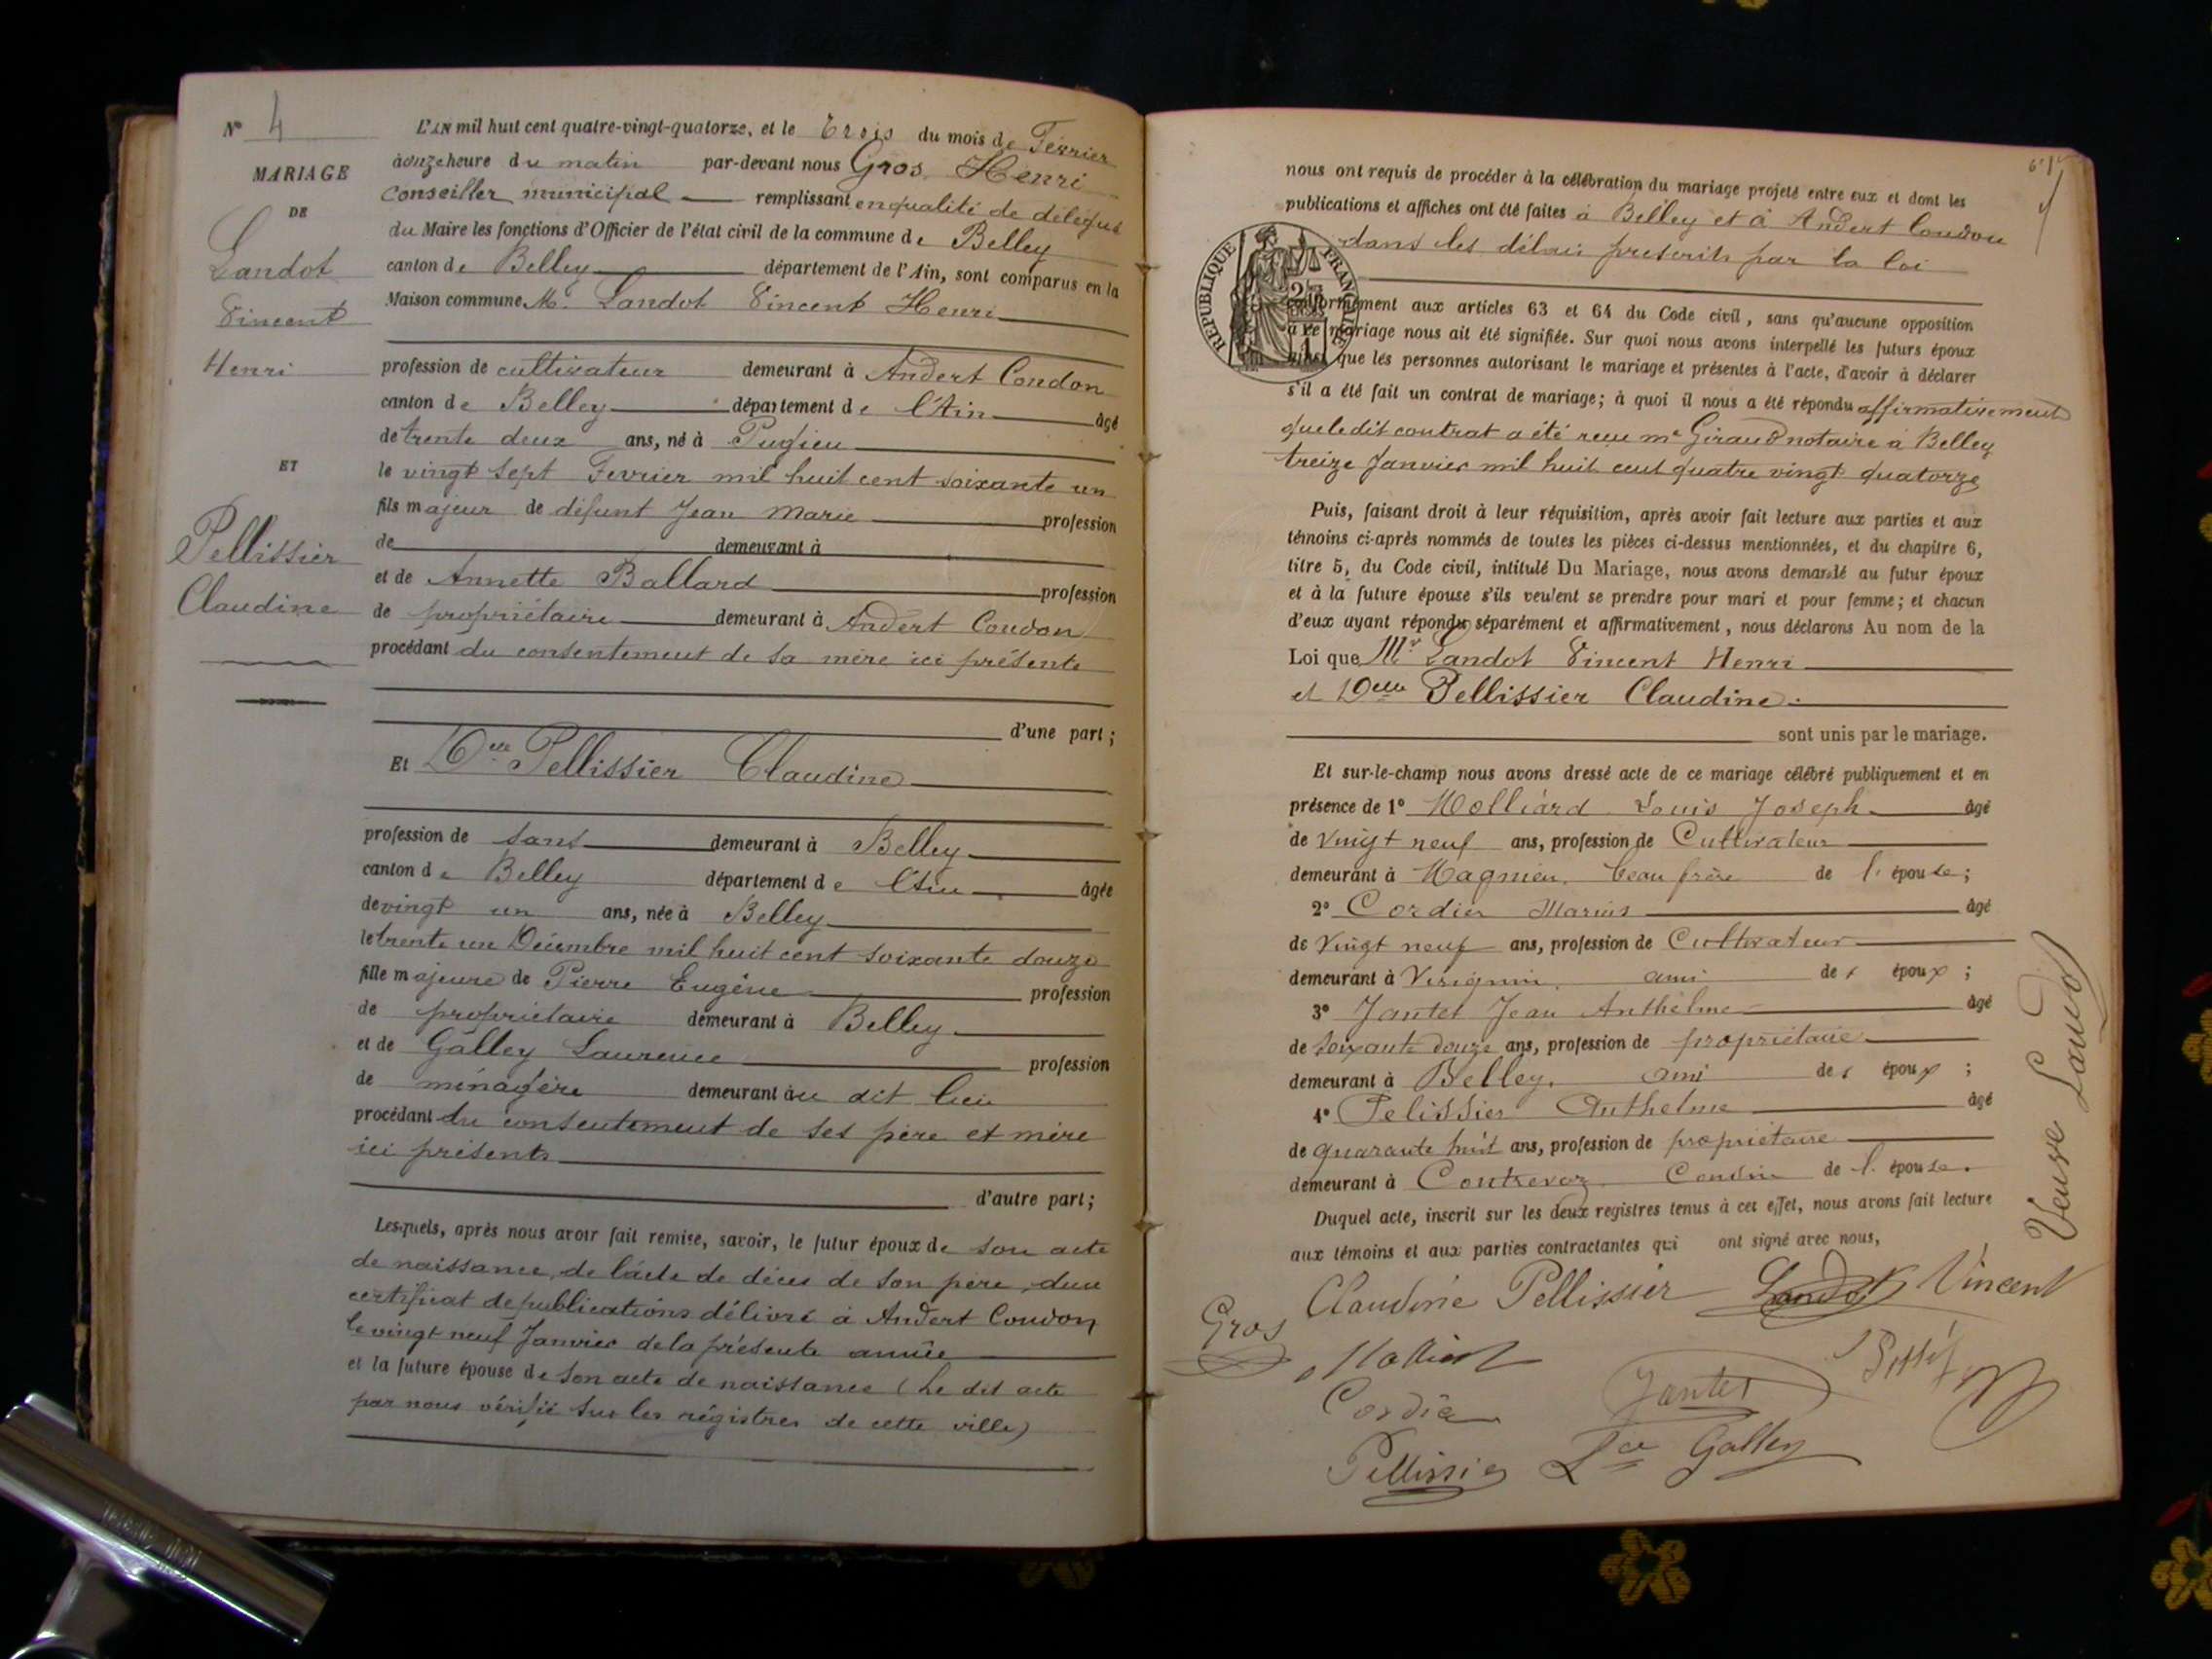 N° 4
MARIAGE
DE
Landot
Vincent
Henri
ET
Pellissier
Claudine
L'AN mil huit cent quatre-vingt-quatorze, et le Trois du mois de Février
à onze heure du matin par-devant nous Gros Henri
Conseiller municipal remplissant en qualité de délégué
du Maire les fonctions d'Officier de l'état civil de la commune de Belley
canton de Belley département de l'Ain, sont comparus en la
Maison commune M. Landot Vincent Henri
profession de cultivateur demeurant à Andert Condon
canton de Belley département de l'Ain âgé
de trente deux ans, né à Pugieu
le vingt sept Fevrier mil huit cent soixante un
fils majeur de défunt Jean Marie profession
de demeurant à
et de Annette Ballard profession
de propriétaire demeurant à Andert Condon
procédant du consentement de sa mère ici présente
d'une part ;
Et Delle Pellissier Claudine
profession de sans demeurant à Belley
canton de Belley département de l'Ain âgée
de vingt un ans, née à Belley
le trente un Décembre mil huit cent soixante douze
fille majeure de Pierre Eugène profession
de propriétaire demeurant à Belley
et de Galley Laurence profession
de ménagère demeurant au dit lieu
procédant du consentement de ses père et mère
ici présents
d'autre part ;
Lesquels, après nous avoir fait remise, savoir, le futur époux de son acte
de naissance, de l'acte de décès de son père, d'un
certificat de publications délivré à Andert Condon
le vingt neuf Janvier de la présente année
et la future épouse de son acte de naissance (Le dit acte
par nous vérifié sur les régistres de cette ville)
nous ont requis de procéder à la célébration du mariage projeté entre eux et dont les
publications et affiches ont été faites à Belley et à Andert Condon
dans les délais prescrits par la loi
RÉPUBLIQUE FRANÇAISE
conformément aux articles 63 et 64 du Code civil, sans qu'aucune opposition
à ce mariage nous ait été signifiée. Sur quoi nous avons interpellé les futurs époux
ainsi que les personnes autorisant le mariage et présentes à l'acte, d'avoir à déclarer
s'il a été fait un contrat de mariage ; à quoi il nous a été répondu affirmativement
que le dit contrat a été reçu me Giraud notaire à Belley
treize Janvier mil huit cent quatre vingt quatorze
Puis, faisant droit à leur réquisition, après avoir fait lecture aux parties et aux
témoins ci-après nommés de toutes les pièces ci-dessus mentionnées, et du chapitre 6,
titre 5, du Code civil, intitulé Du Mariage, nous avons demandé au futur époux
et à la future épouse s'ils veulent se prendre pour mari et pour femme ; et chacun
d'eux ayant répondu séparément et affirmativement, nous déclarons Au nom de la
Loi que Mr Landot Vincent Henri
et Delle Pellissier Claudine
sont unis par le mariage.
Et sur-le-champ nous avons dressé acte de ce mariage célébré publiquement et en
présence de 1° Molliard Louis Joseph âgé
de vingt neuf ans, profession de Cultivateur
demeurant à Magnieu, beau frère de l'épouse ;
2° Cordier Marius âgé
de Vingt neuf ans, profession de Cultivateur
demeurant à Virignin, ami de l'époux ;
3° Jantet Jean Anthelme âgé
de soixante douze ans, profession de propriétaire
demeurant à Belley, ami de l'époux ;
4° Pelissier Anthelme âgé
de quarante huit ans, profession de propriétaire
demeurant à Contrevoz Cousin de l'épouse.
Duquel acte, inscrit sur les deux registres tenus à cet effet, nous avons fait lecture
aux témoins et aux parties contractantes qui ont signé avec nous,
Claudine Pellissier Landot Vincent
Veuve Landot
Gros
Cordier
Jantet
Pellissier Lce Galley